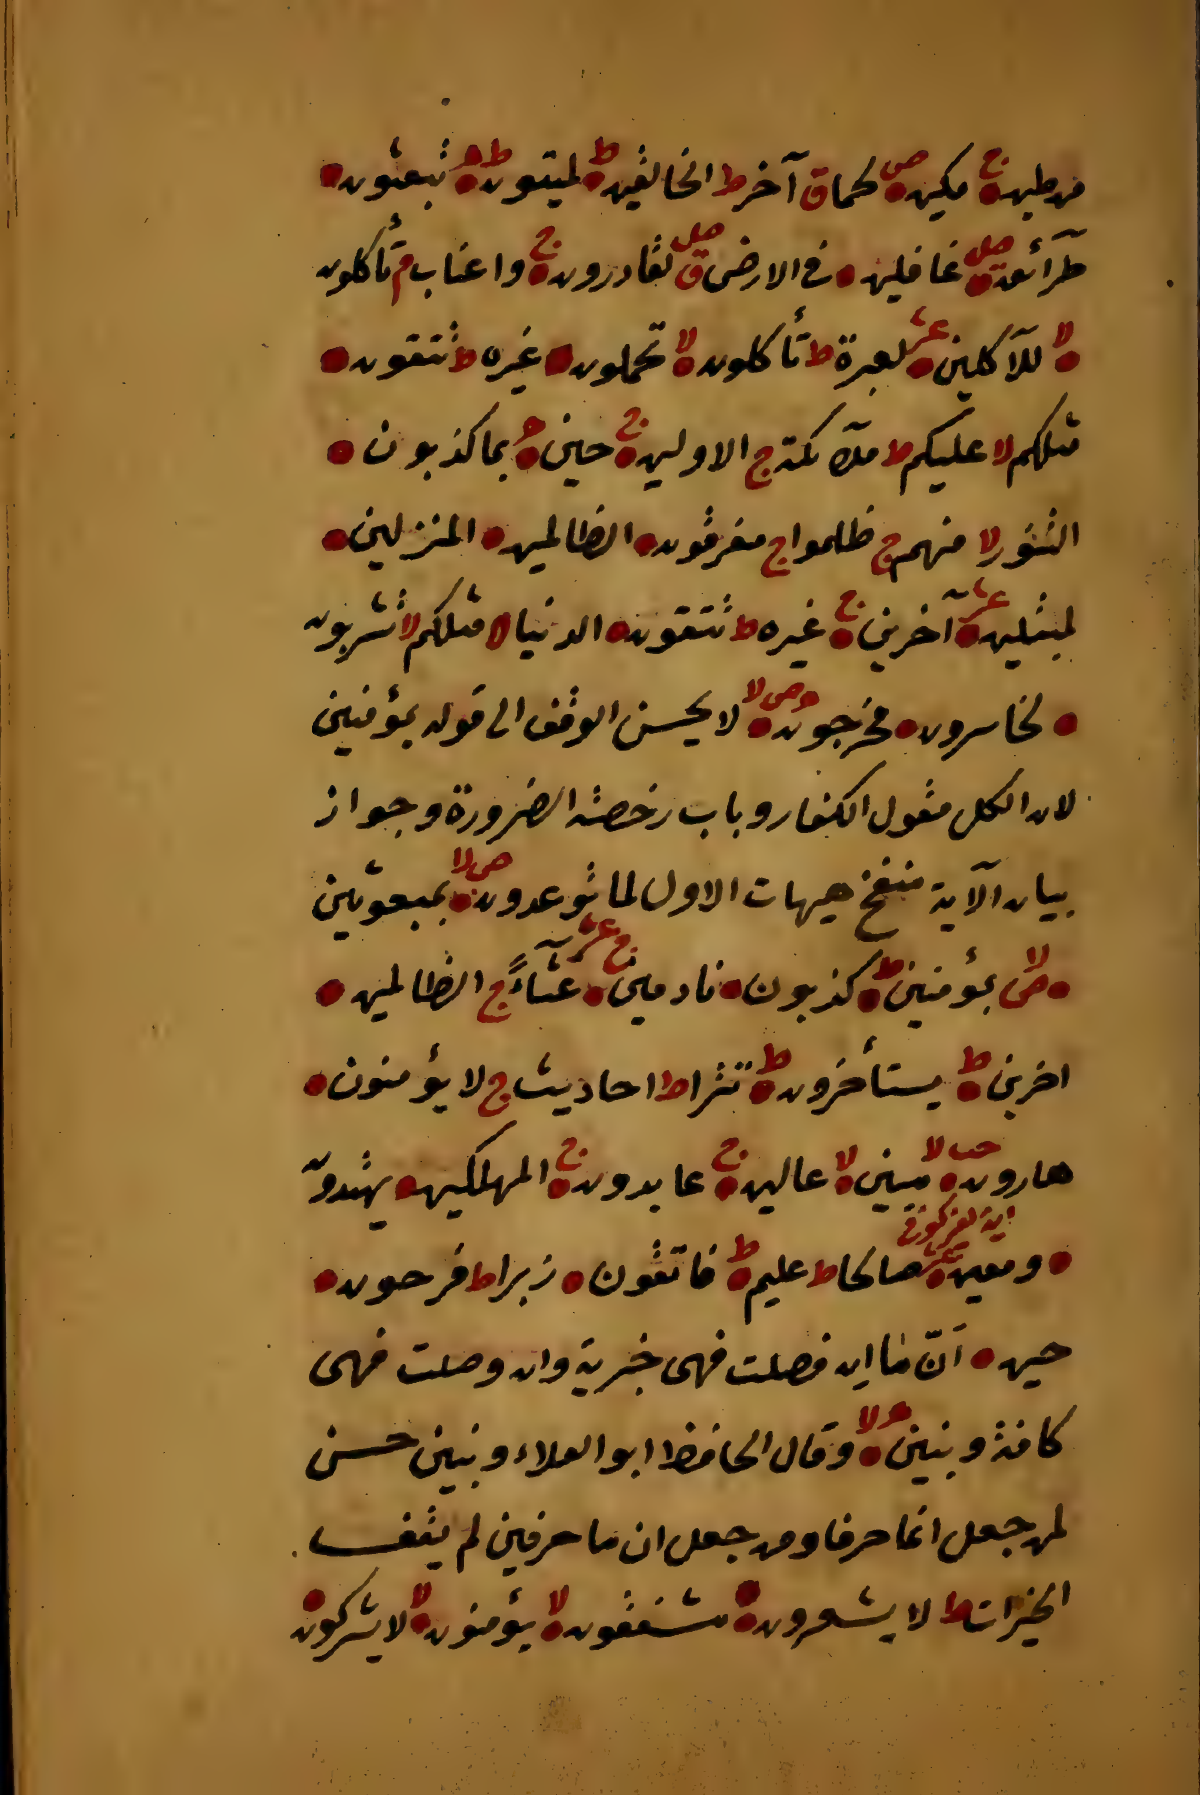 من طين ج مكين ص لحما ق آخر ط الخالقين ط لميتون ط ه تبعثون
طرآئق صلى غافلين في الارض ق صلى لقادرون ج واعناب م تأكلون
لا للآكلين عشر لعبرة ط تأكلون لا تحملون غيره ط تتقون
مثلكم لا عليكم ط ملآئكة ج الاولين ج حين ه بما كذبون
التنور لا منهم ج ظلموا ج مغرقون الظالمين المنزلين
لمبتلين عشر آخرين ج غيره ط تتقون الدنيا لا مثلكم لا تشربون
لخاسرون مخرجون ه ص لا لا يحسن الوقف الى قوله بمؤمنين
لان الكل مقول الكفار وباب رخصة الضرورة وجواز
بيان الآية منفخ هيهات الاول لما توعدون ص لا بمبعوثين
لا ص بمؤمنين ط كذبون نادمين ج عشر غثآءً ج الظالمين
اخرين ط يستأخرون ط تترا ط احاديث ج لا يؤمنون
هارون لا مبين لا عالين ج عابدون ج المهلكين يهتدون
ومعين عشر صالحا ط عليم ط فاتقون زبرا ط فرحون
حين انّ ما ان فصلت فهى خبرية وان وصلت فهى
كافة وبنين ه لا وقال الحافظ ابو العلاء وبنين حسن
لمن جعل انما حرفا ومن جعل ان ما حرفين لم يقف
الخيرات ط لا يشعرون مشفقون لا يؤمنون لا لا يشركون